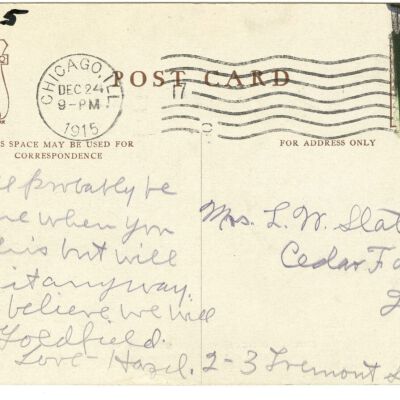 5
CHICAGO, ILL.
DEC 24
9-PM
1915
POST CARD
S SPACE MAY BE USED FOR
CORRESPONDENCE
FOR ADDRESS ONLY
probably be
when you
this but will
it anyway.
believe we will
Goldfield.
Love - Hazel.
Mrs. L. W. Slat
Cedar Fa
2-3 Tremont S